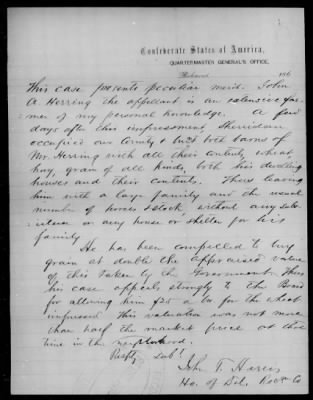 Confederate States of America,
QUARTERMASTER GENERAL'S OFFICE,
Richmond 186
This case presents peculiar merit. John
A. Herring the appellant is an extensive far-
mer of my personal knowledge. A few
days after this impressment Sheridan
occupied our County & burnt both barns of
Mr. Herring with all their contents, wheat,
hay, grain of all kinds, both his dwelling
houses and their contents. Thus leaving
him with a large family and the usual
number of horses & stock, without any sub-
sistence or any house or shelter for his
family
He has been compelled to buy
grain at double the appraised value
of this taken by the Government. Thus
his case appeals strongly to the Board
for allowing him $20 a bu for the wheat
impressed. This valuation was not more
than half the market price at the
time in the neighborhood.
Respfy Subt
John T. Harris
Ho. of Del. Rock Co